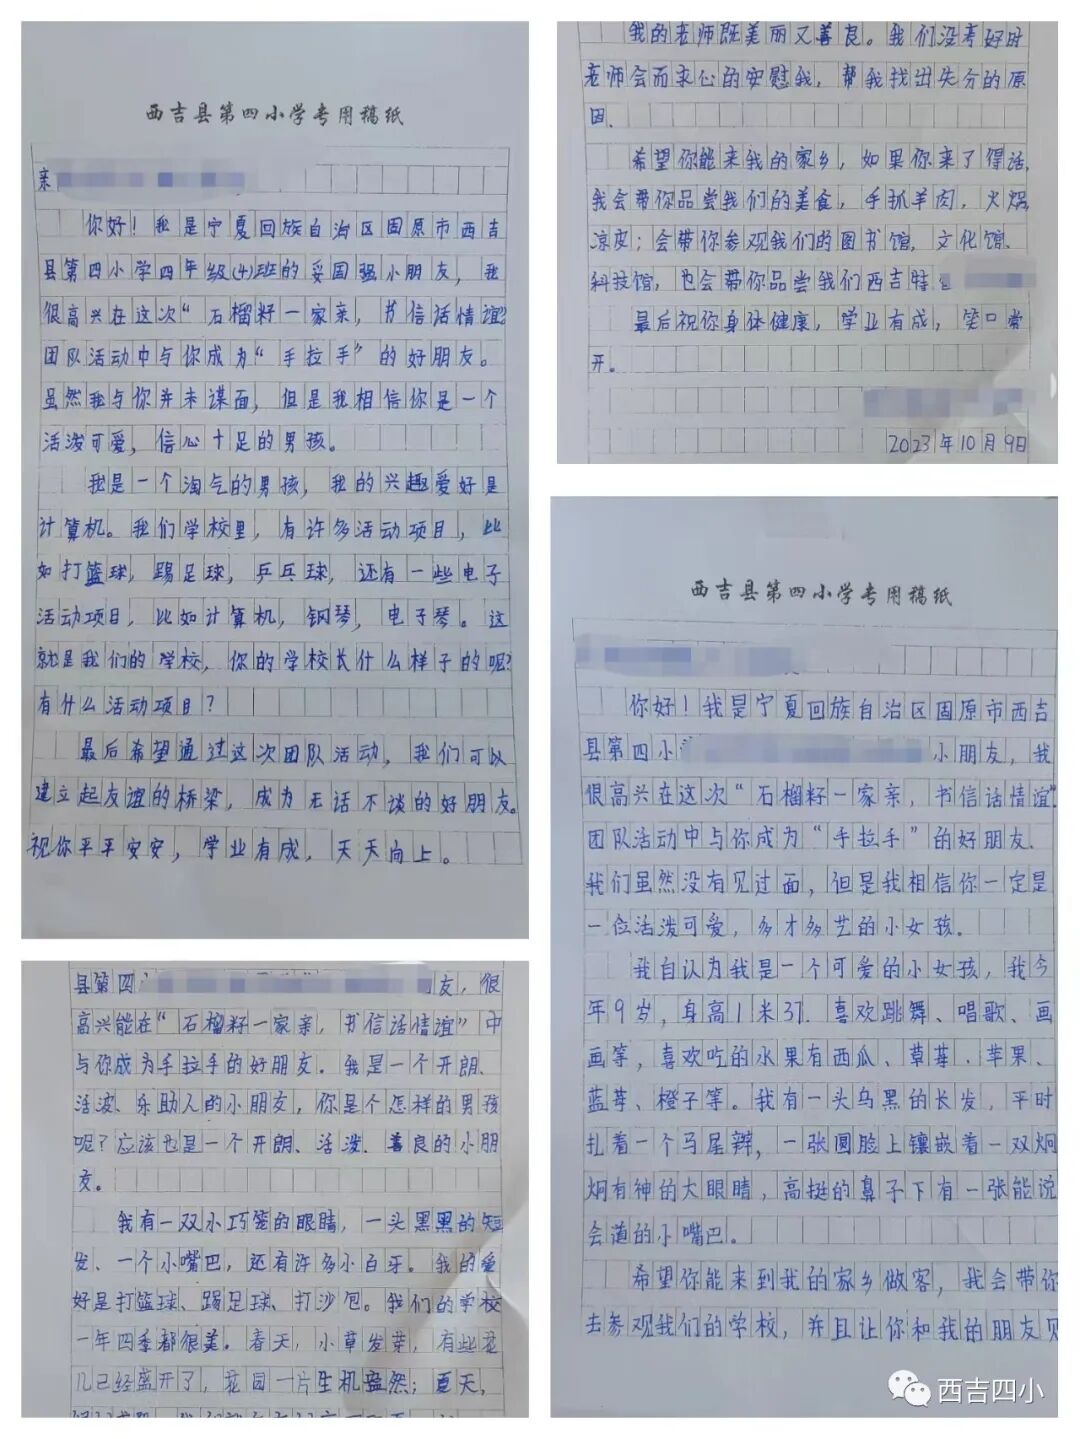 西吉县第四小学专用稿纸
亲
你好！我是宁夏回族自治区固原市西吉
县第四小学四年级(4)班的妥国强小朋友，我
很高兴在这次“石榴籽一家亲，书信话情谊”
团队活动中与你成为“手拉手”的好朋友。
虽然我与你并未谋面，但是我相信你是一个
活泼可爱，信心十足的男孩。
我是一个淘气的男孩，我的兴趣爱好是
计算机。我们学校里，有许多活动项目，比
如打篮球，踢足球，乒乓球，还有一些电子
活动项目，比如计算机，钢琴，电子琴。这
就是我们的学校，你的学校长什么样子的呢？
有什么活动项目？
最后希望通过这次团队活动，我们可以
建立起友谊的桥梁，成为无话不谈的好朋友。
祝你平平安安，学业有成，天天向上。
我的老师既美丽又善良。我们没考好时
老师会而求心的安慰我，帮我找出失分的原
因。
希望你能来我的家乡，如果你来了得话，
我会带你品尝我们的美食，手抓羊肉，火锅
凉皮；会带你参观我们的图书馆，文化馆、
科技馆，也会带你品尝我们西吉特
最后祝你身体健康，学业有成，笑口常
开。
2023年10月9日
县第四 友，很
高兴能在“石榴籽一家亲，书信话情谊”中
与你成为手拉手的好朋友。我是一个开朗、
活波、乐助人的小朋友，你是个怎样的男孩
呢？应该也是一个开朗、活泼、善良的小朋
友。
我有一双小巧笼的眼睛，一头黑黑的短
发、一个小嘴巴，还有许多小白牙。我的爱
好是打篮球、踢足球、打沙包。我们的学校
一年四季都很美。春天，小草发芽，有些花
儿已经盛开了，花园一片生机盎然；夏天，
西吉县第四小学专用稿纸
你好！我是宁夏回族自治区固原市西吉
县第四小 小朋友，我
很高兴在这次“石榴籽一家亲，书信话情谊”
团队活动中与你成为“手拉手”的好朋友、
我们虽然没有见过面，但是我相信你一定是
一位活泼可爱，多才多艺的小女孩。
我自认为我是一个可爱的小女孩，我今
年9岁，身高1米37. 喜欢跳舞、唱歌、画
画等，喜欢吃的水果有西瓜、草莓、苹果、
蓝莓、橙子等。我有一头乌黑的长发，平时
扎着一个马尾辫，一张圆脸上镶嵌着一双炯
炯有神的大眼睛，高挺的鼻子下有一张能说
会道的小嘴巴。
希望你能来到我的家乡做客，我会带你
去参观我们的学校，并且让你和我的朋友见
西吉四小